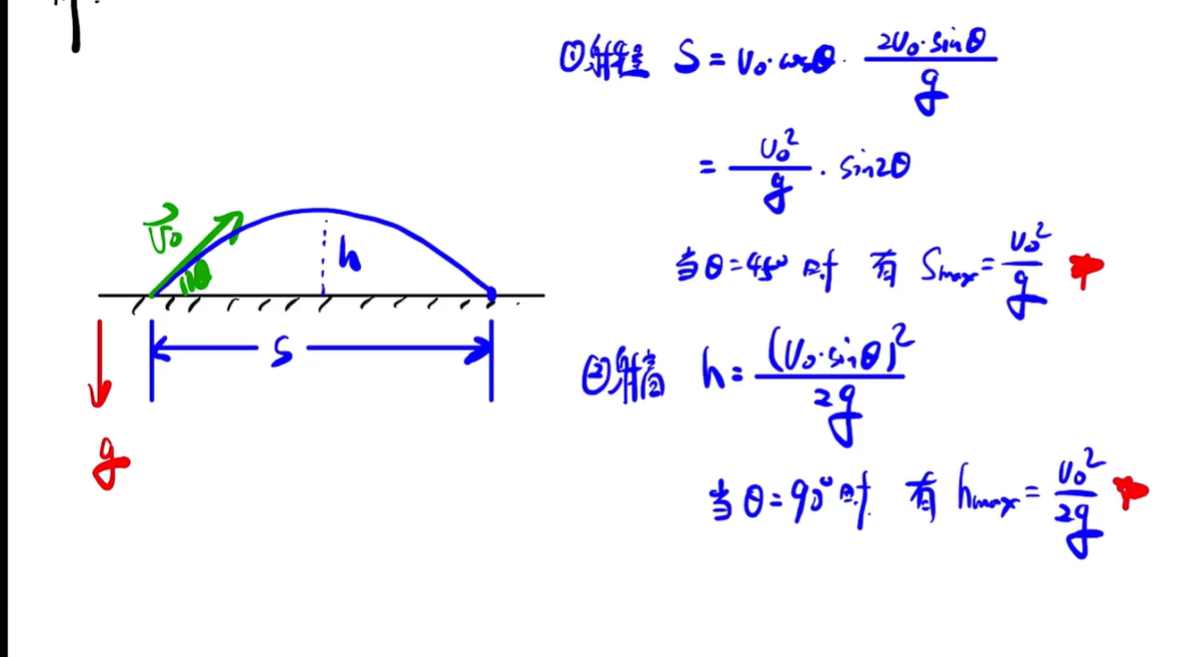 ①射程 S = v₀·cosθ · 2v₀·sinθ / g
= v₀² / g · sin2θ
当θ=45°时 有 Smax = v₀² / g
②射高 h = (v₀·sinθ)² / 2g
当θ=90°时 有 hmax = v₀² / 2g
v⃗₀
θ
h
S
g